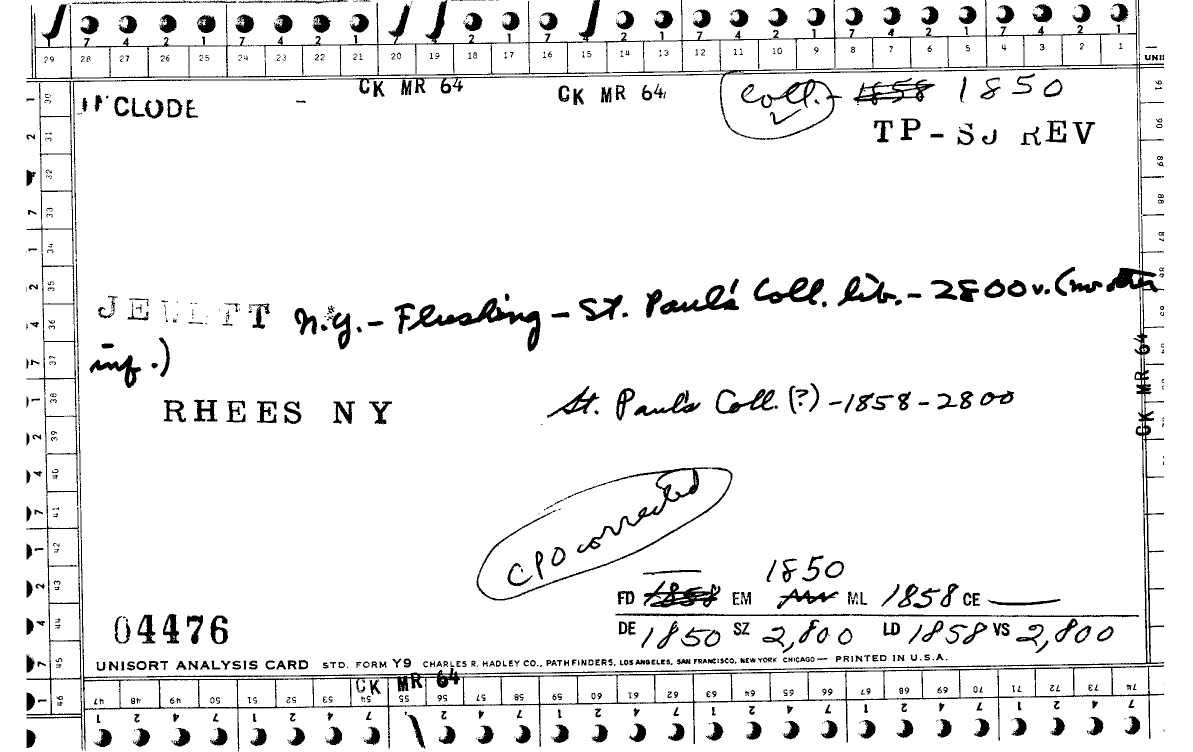 7 4 2 1 7 4 2 1 7 4 2 1 7 4 2 1 7 4 2 1 7 4 2 1
29 28 27 26 25 24 23 22 21 20 19 18 17 16 15 14 13 12 11 10 9 8 7 6 5 4 3 2 1
CK MR 64 CK MR 64 Coll. - 1858 1850
CLUDE -
TP - SJ REV
JEWETT N.Y. - Flushing - St. Paul's Coll. lib. - 2800 v. (no other
inf.)
RHEES NY St. Paul's Coll. (?) - 1858 - 2800
CK MR 64
CPO corrected
1850
FD 1858 EM ML 1858 CE
04476 DE 1850 SZ 2,800 LD 1858 VS 2,800
UNISORT ANALYSIS CARD STD. FORM Y9 CHARLES R. HADLEY CO., PATHFINDERS, LOS ANGELES, SAN FRANCISCO, NEW YORK CHICAGO — PRINTED IN U.S.A.
CK MR 64
47 48 49 50 51 52 53 54 55 56 57 58 59 60 61 62 63 64 65 66 67 68 69 70 71 72 73 74
1 2 4 7 1 2 4 7 1 2 4 7 1 2 4 7 1 2 4 7 1 2 4 7